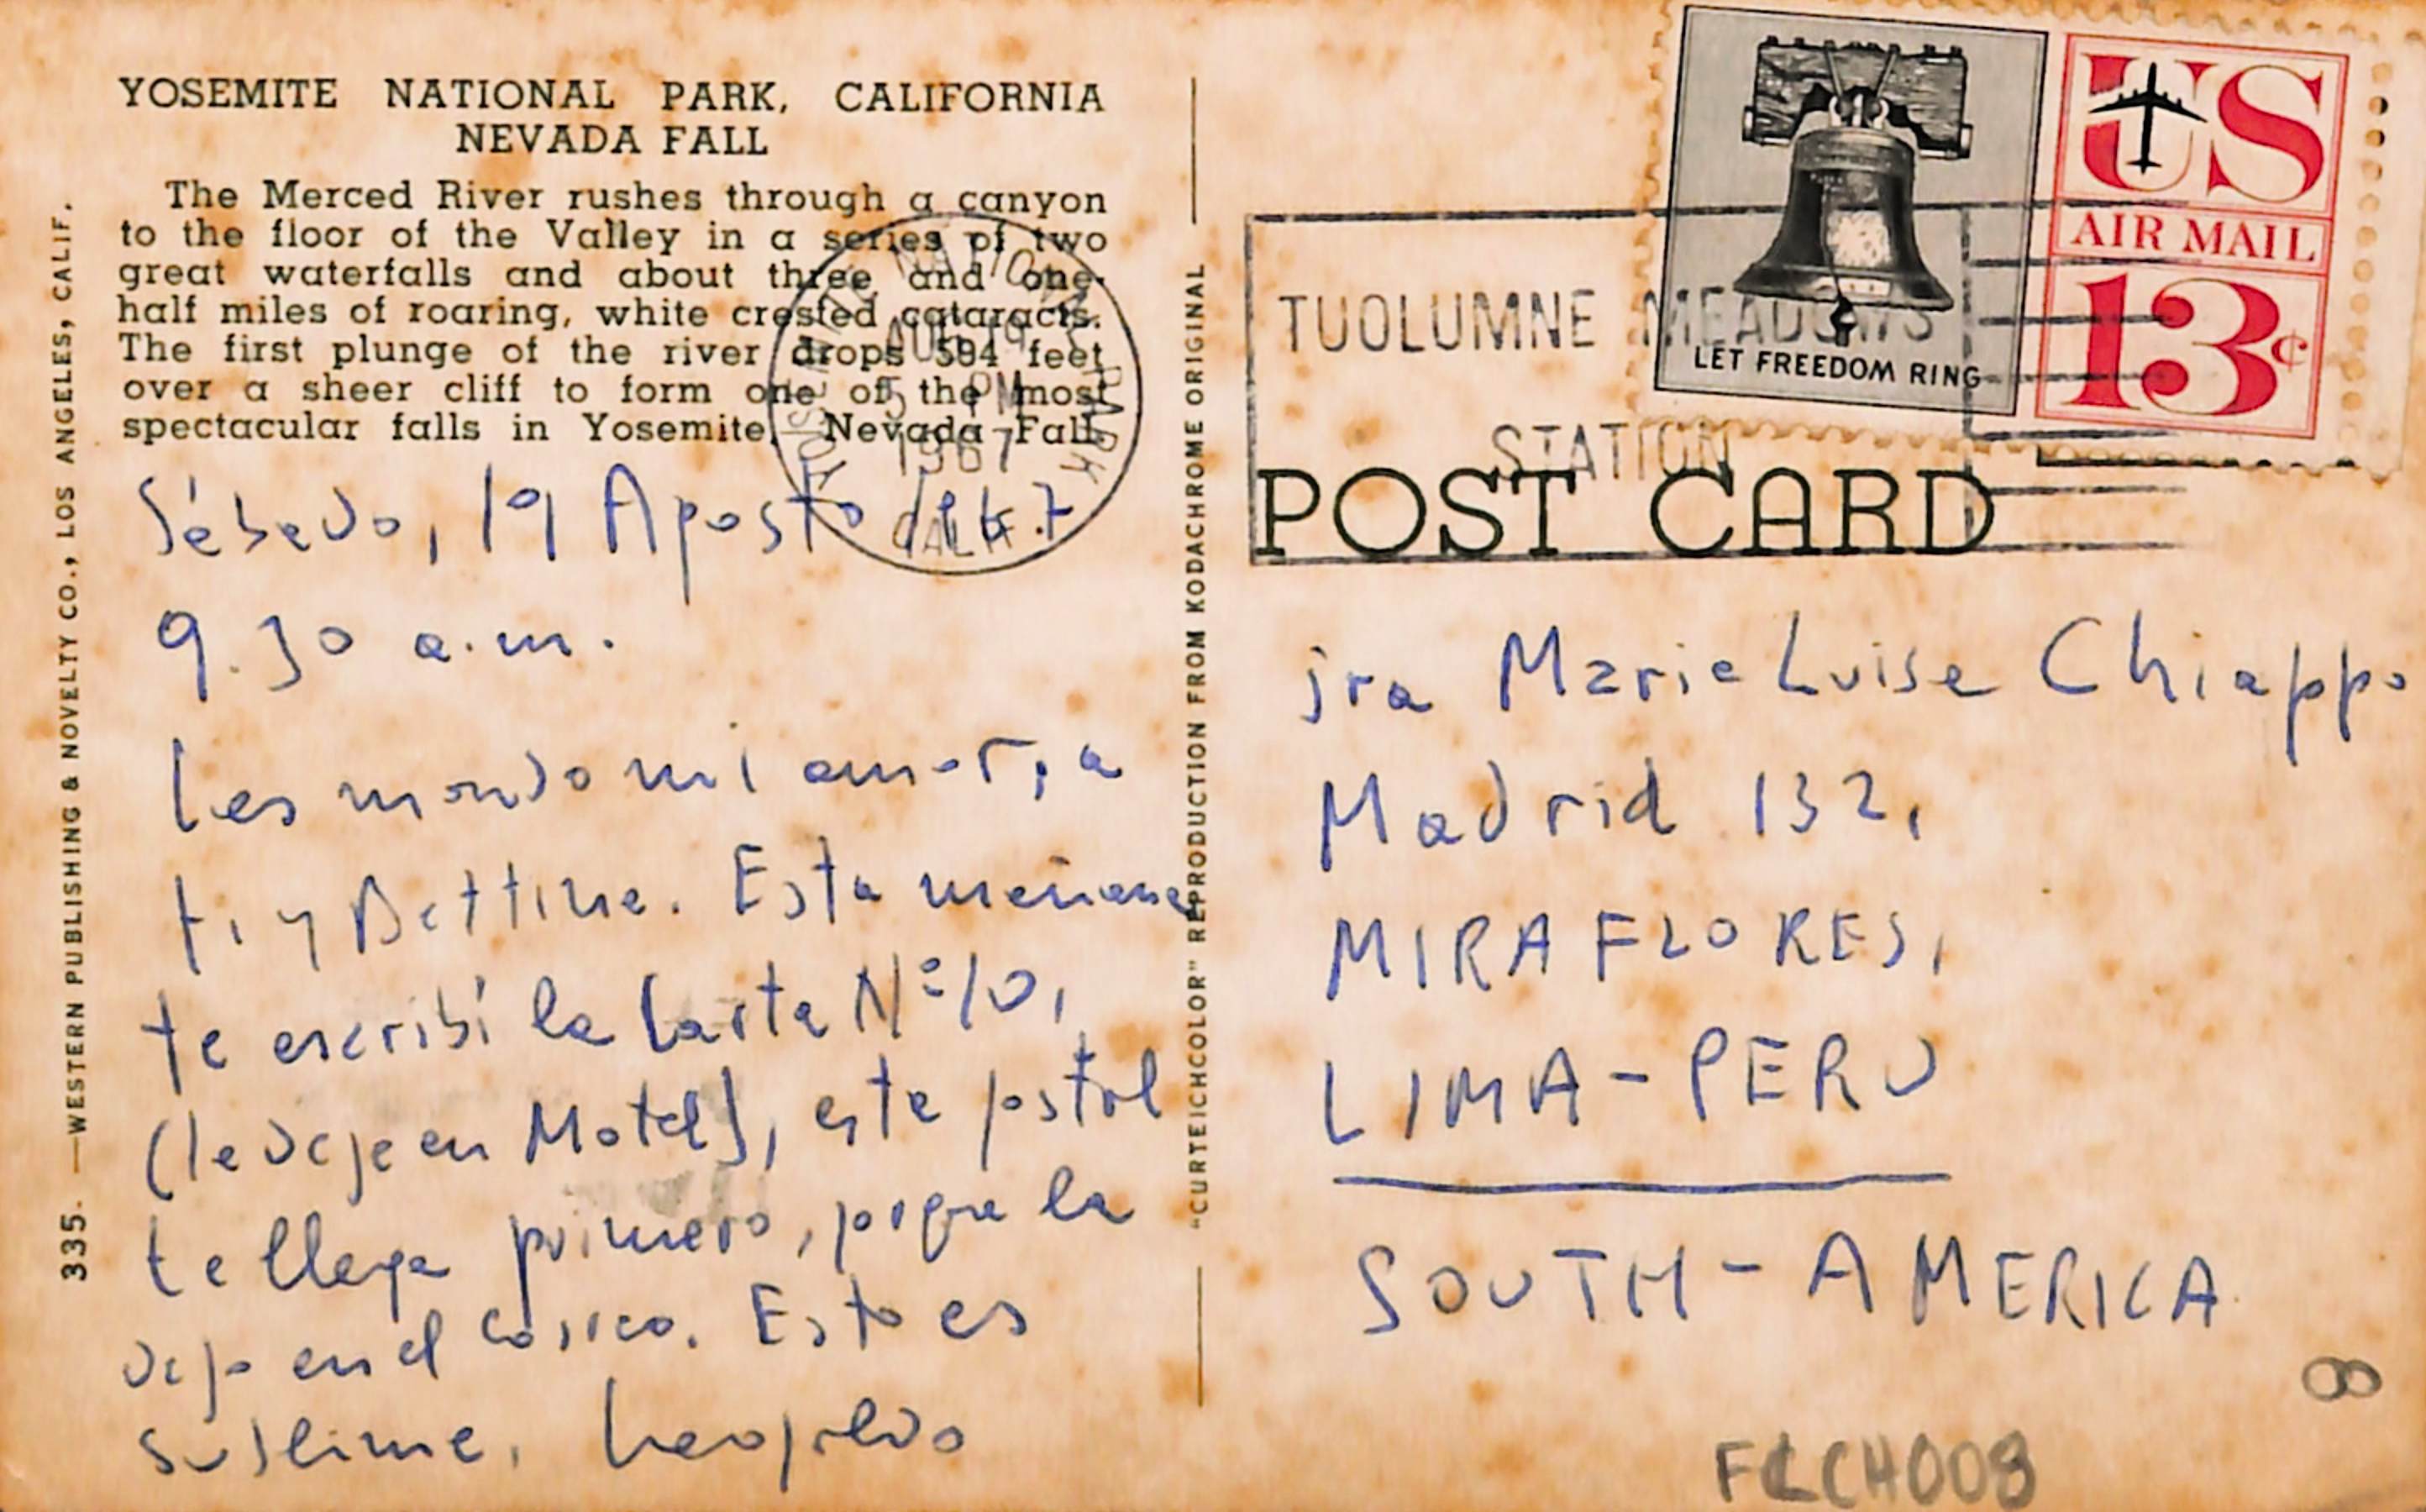 YOSEMITE NATIONAL PARK, CALIFORNIA
NEVADA FALL
The Merced River rushes through a canyon
to the floor of the Valley in a series of two
great waterfalls and about three and one-
half miles of roaring, white crested cataracts.
The first plunge of the river drops 594 feet
over a sheer cliff to form one of the most
spectacular falls in Yosemite, Nevada Fall.
335. —WESTERN PUBLISHING & NOVELTY CO., LOS ANGELES, CALIF.
Sábado, 19 Agosto de 67
9.30 a.m.
Les mando mi amor, a
ti y Bettina. Esta mañana
te escribí la Carta Nº 10,
(la dejé en Motel), esta postal
te llega primero, porque la
dejo en el correo. Esto es
sublime. Leopoldo
"CURTEICHCOLOR" REPRODUCTION FROM KODACHROME ORIGINAL
YOSEMITE NATIONAL PARK
AUG 19
5 PM
1967
CALIF.
TUOLUMNE MEADOWS
STATION
LET FREEDOM RING
US
AIR MAIL
13¢
POST CARD
Sra Maria Luisa Chiappo
Madrid 132,
MIRAFLORES,
LIMA-PERU
SOUTH-AMERICA
8
FLCH008